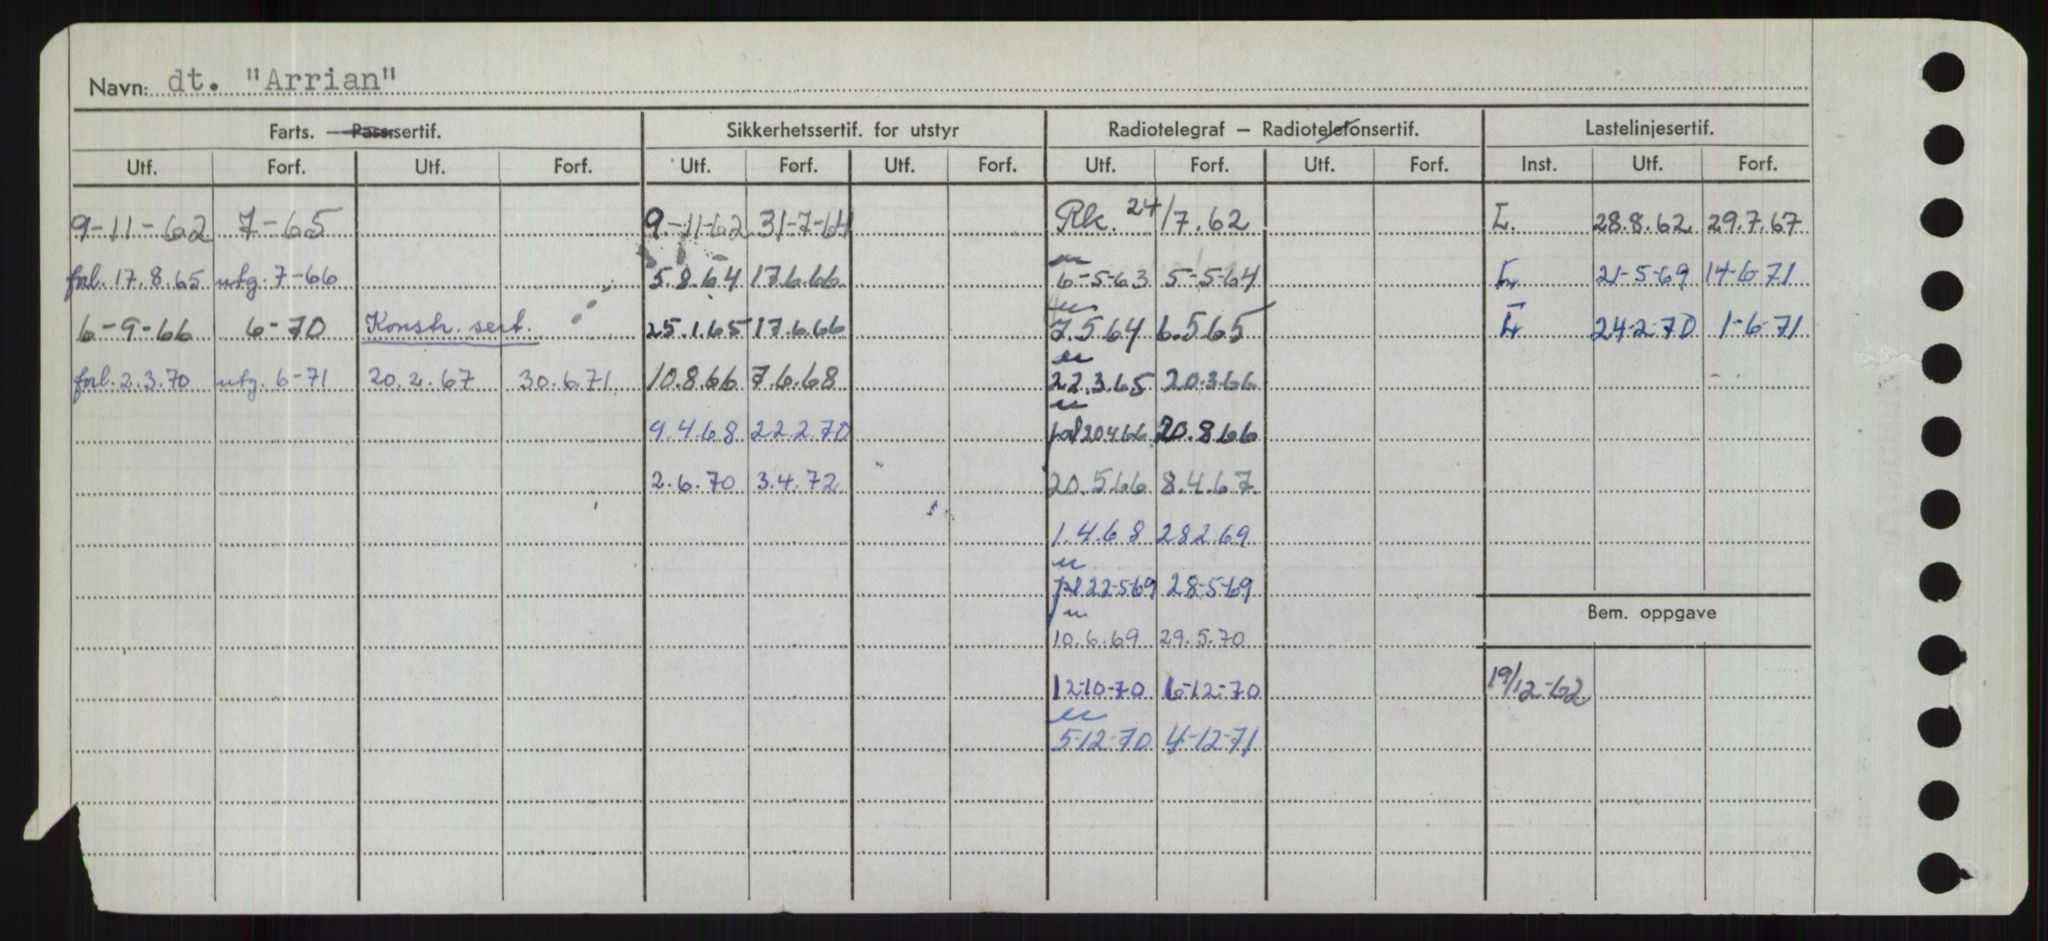 Navn: dt. "Arrian"
Farts. — Pass.sertif. Sikkerhetssertif. for utstyr Radiotelegraf — Radiotelefonsertif. Lastelinjesertif.
Utf. Forf. Utf. Forf. Utf. Forf. Utf. Forf. Utf. Forf. Utf. Forf. Inst. Utf. Forf.
9-11-62 7-65 9-11-62 31-7-64 Rk. 24/7.62 Ł. 28.8.62 29.7.67
forl. 17.8.65 utg. 7-66 5.8.64 17.6.66 6-5-63 5-5-64 Ł 21-5-69 14-6-71
6-9-66 6-70 Konstr. sert. 25.1.65 17.6.66 7.5.64 6.5.65 Ł 24-2-70 1-6-71
forl. 2.3.70 utg. 6-71 20.2.67 30.6.71 10.8.66 7.6.68 22.3.65 20.3.66
9.4.68 22.2.70 forl 20.4.66 20.8.66
2.6.70 3.4.72 20.5.66 8.4.67
1.4.68 28.2.69
22-5-69 28-5-69
Bem. oppgave
10.6.69 29.5.70
12-10-70 6-12-70 19/12-62
5-12-70 4-12-71